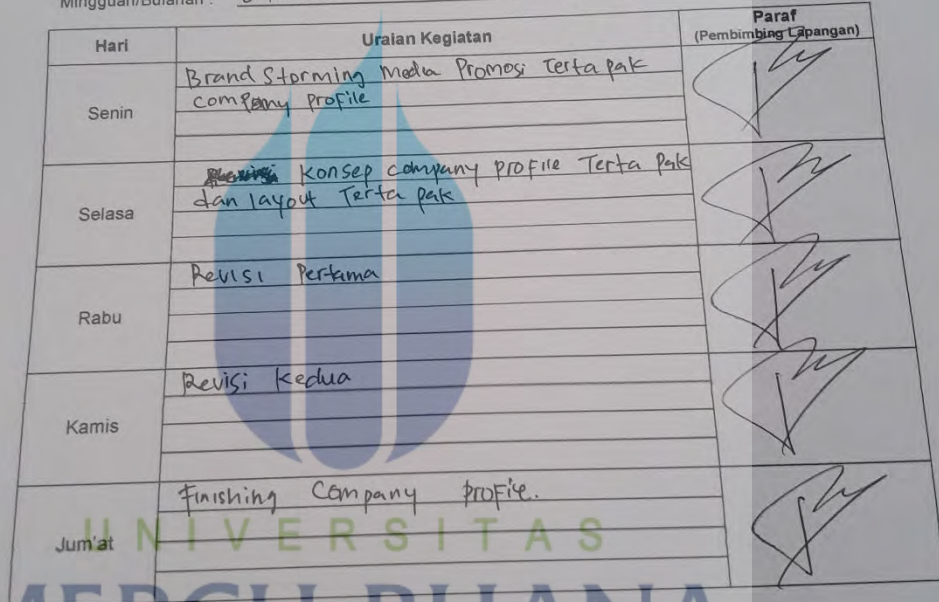 Mingguan/Bulanan :
Hari
Uraian Kegiatan
Paraf
(Pembimbing Lapangan)
Senin
Brand Storming Media Promosi Terta pak
company profile
Selasa
konsep company profile Terta pak
dan layout Terta pak
Rabu
Revisi Pertama
Kamis
Revisi Kedua
Jum'at
Finishing Company profile.
UNIVERSITAS
MERCU BUANA